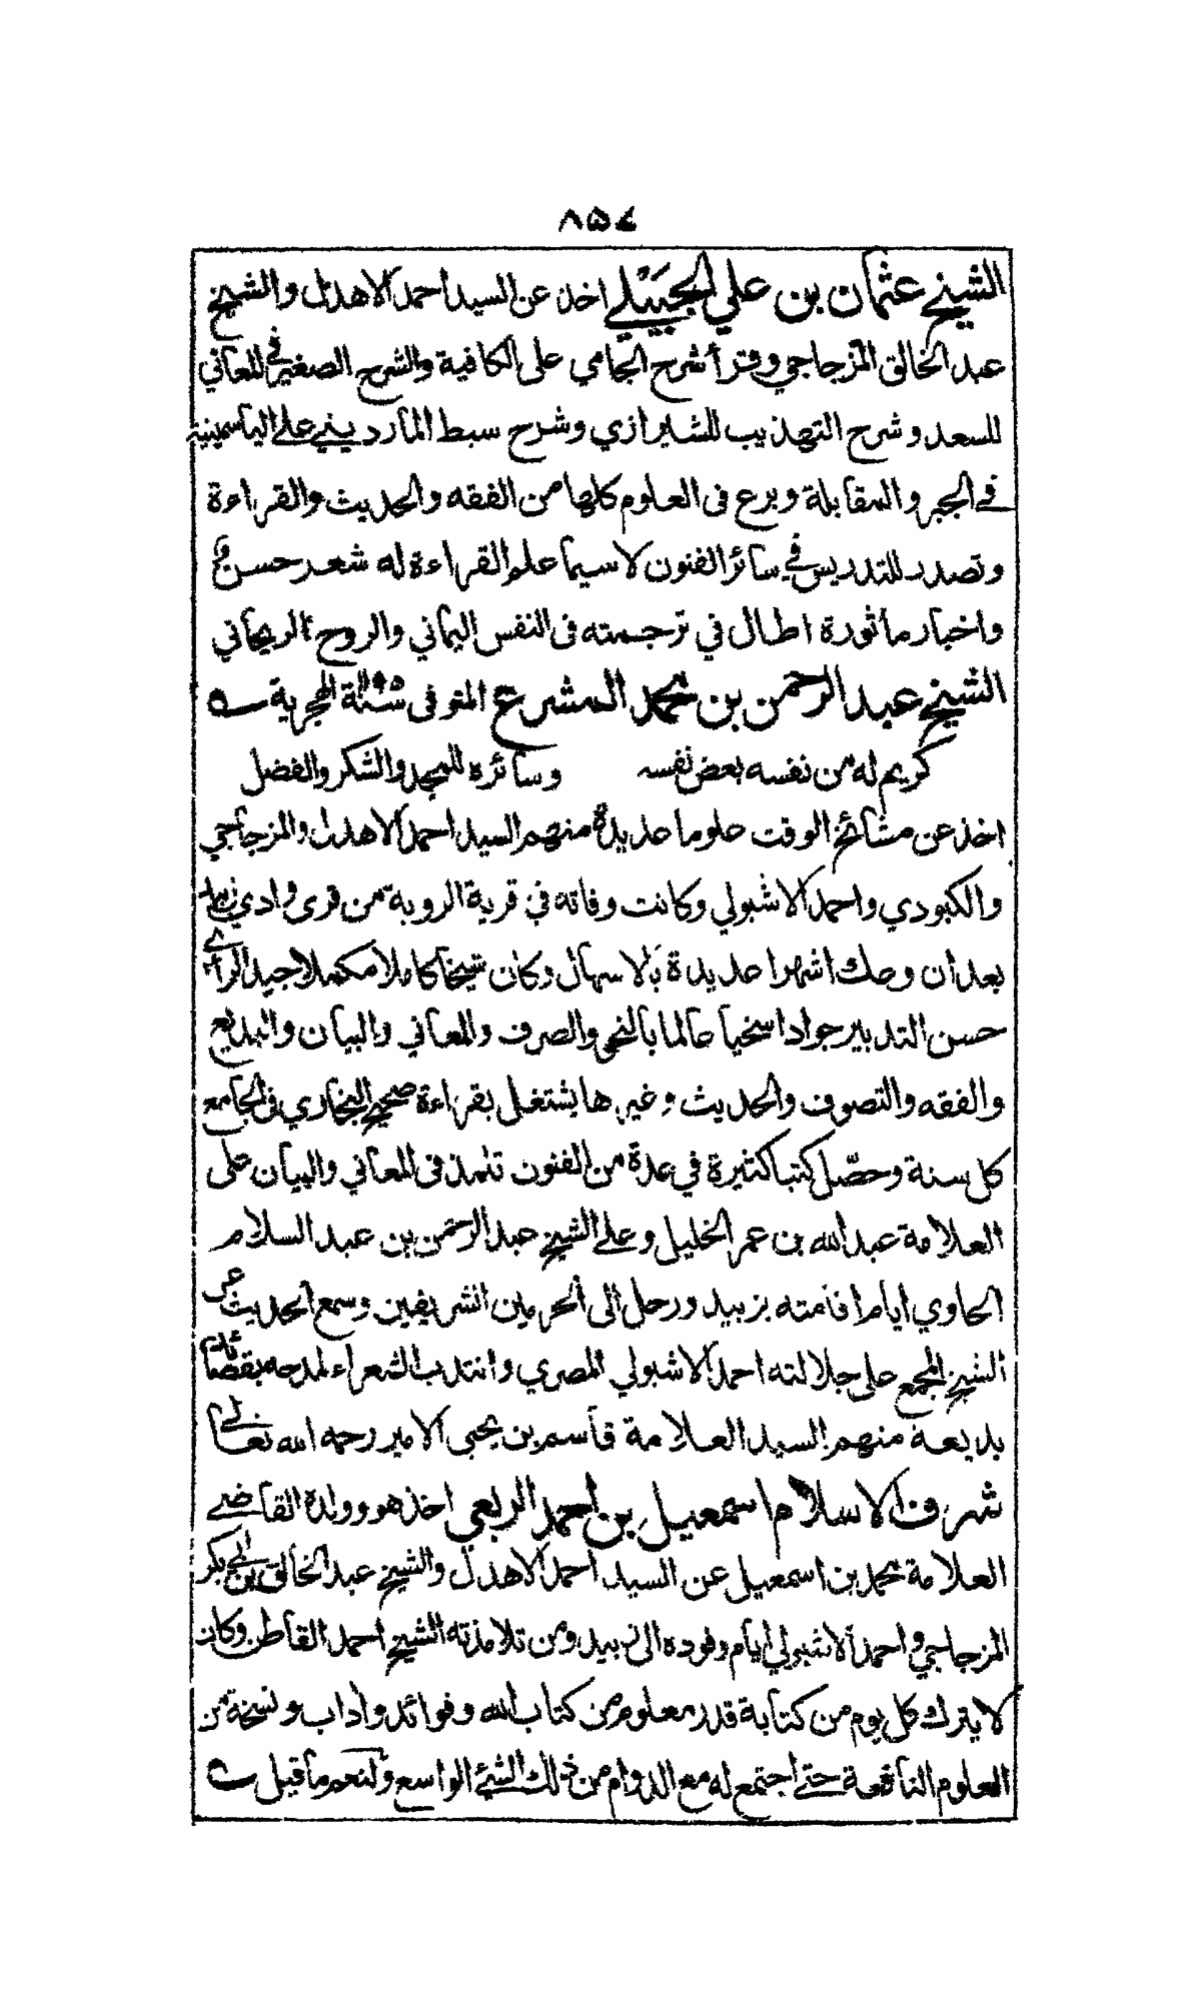 ٨٥٧
الشيخ عثمان بن علي الجبيلي اخذ عن السيد أحمد الاهدل والشيخ
عبد الخالق المزجاجي وقرأ شرح الجامي على الكافية والشرح الصغير في المعاني
للسعد وشرح التهذيب للشيرازي وشرح سبط المارديني على الياسمينية
في الجبر والمقابلة وبرع في العلوم كلها من الفقه والحديث والقراءة
وتصدر للتدريس في سائر الفنون لا سيما علم القراءة له شعر حسن
واخبار ماثورة اطال في ترجمته في النفس اليماني والروح الريحاني
الشيخ عبد الرحمن بن محمد المشرع المتوفى سنة الهجرية
كريم له من نفسه بعض نفسه وسائره للمجد والشكر والفضل
اخذ عن مشائخ الوقت علوما عديدة منهم السيد احمد الاهدل والمزجاجي
والكبودي واحمد الاشبولي وكانت وفاته في قرية الروية من قرى وادي زبيد
بعد أن وعك اشهرا عديدة بالاسهال وكان شيخا كاملا مكملا جيد الرأي
حسن التدبير جوادا سخيا عالما بالنحو والصرف والمعاني والبيان والبديع
والفقه والتصوف والحديث وغيرها يشتغل بقراءة صحيح البخاري في الجامع
كل سنة وحصّل كتبا كثيرة في عدة من الفنون تلمذ في المعاني والبيان على
العلامة عبد الله بن عمر الخليل وعلى الشيخ عبد الرحمن بن عبد السلام
الحاوي ايام اقامته بزبيد ورحل الى الحرمين الشريفين وسمع الحديث عن
الشيخ المجمع على جلالته احمد الاشبولي المصري وانتدب الشعراء لمدحه بقصائد
بديعة منهم السيد العلامة قاسم بن يحيى الامير رحمه الله تعالى
شرف الاسلام اسمعيل بن احمد الربعي اخذ هو وولده القاضي
العلامة محمد بن اسمعيل عن السيد احمد الاهدل والشيخ عبد الخالق بن ابي بكر
المزجاجي واحمد الاشبولي ايام وفوده الى زبيد ومن تلامذته الشيخ احمد القاطن وكان
لا يترك كل يوم من كتابة قدر معلوم من كتاب الله وفوائد وآداب ونسخة من
العلوم النافعة حتى اجتمع له مع الدوام من ذلك الشئ الواسع ولنعم ما قيل